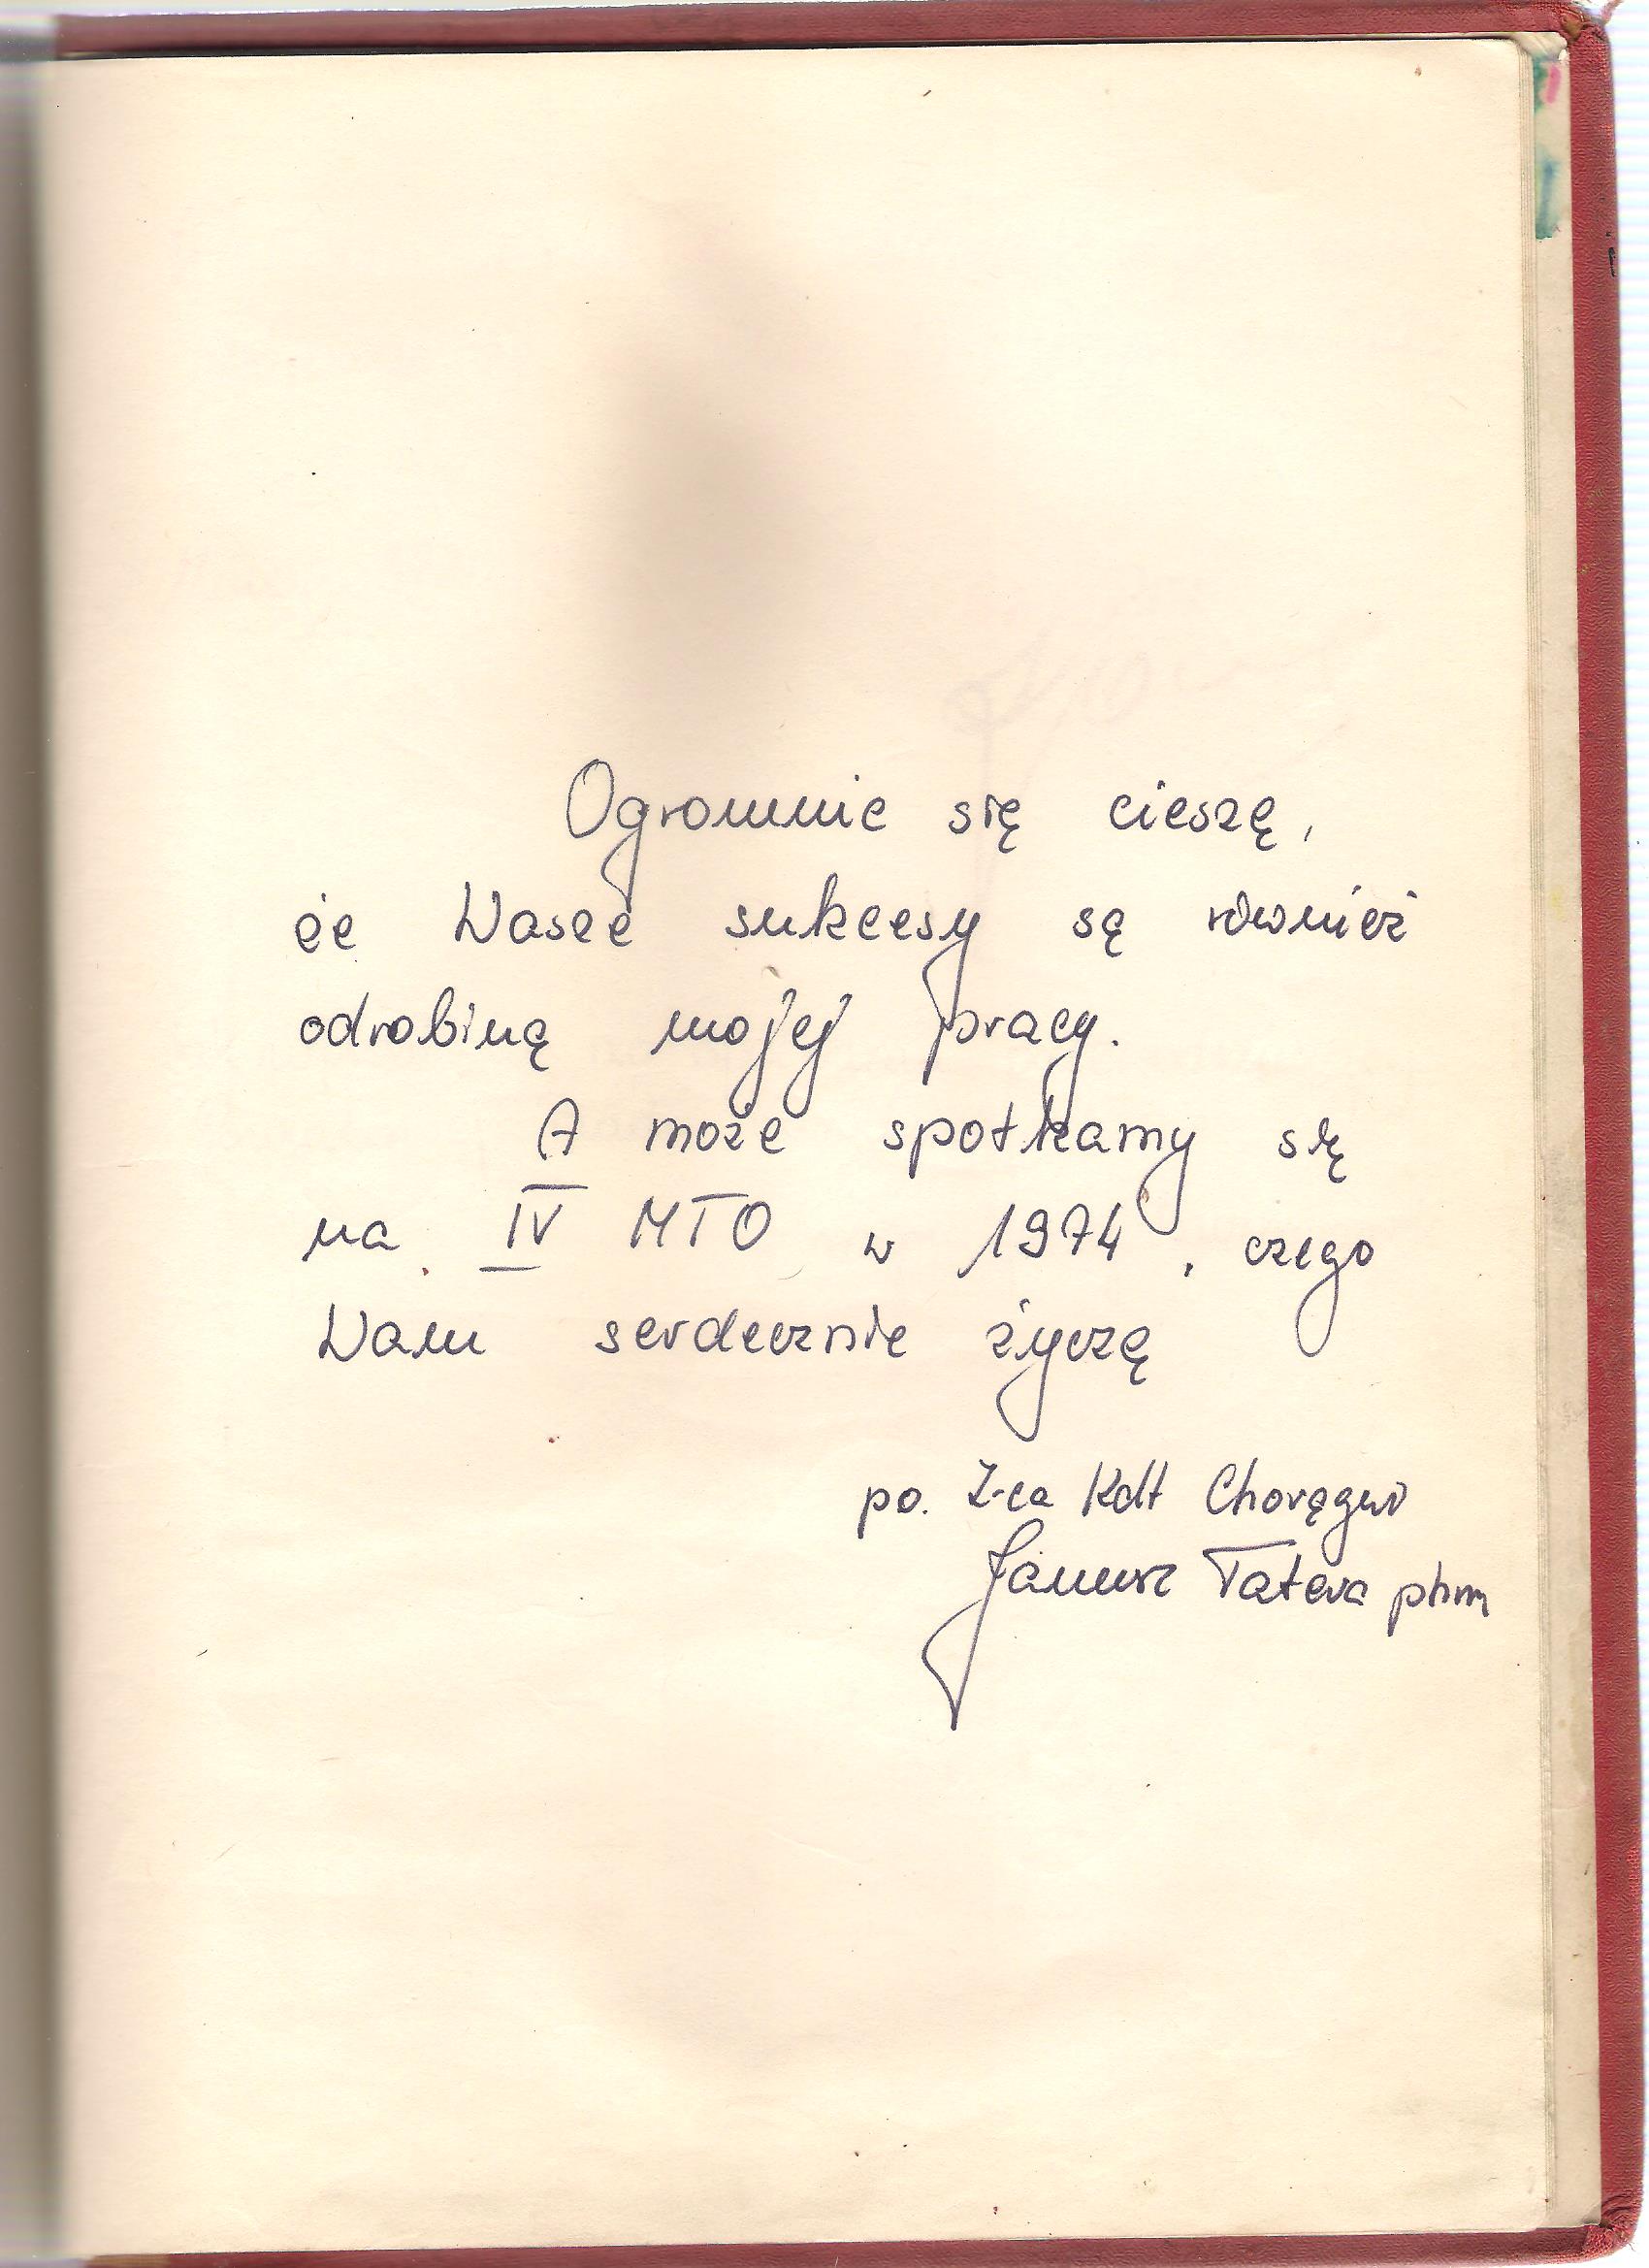 Ogromnie się cieszę,
że Wasze sukcesy są również
odrobiną mojej pracy.
A może spotkamy się
na IV MTO w 1974, czego
Wam serdecznie życzę
po. Z-ca Kdt Chorągwi
Janusz Tatera phm